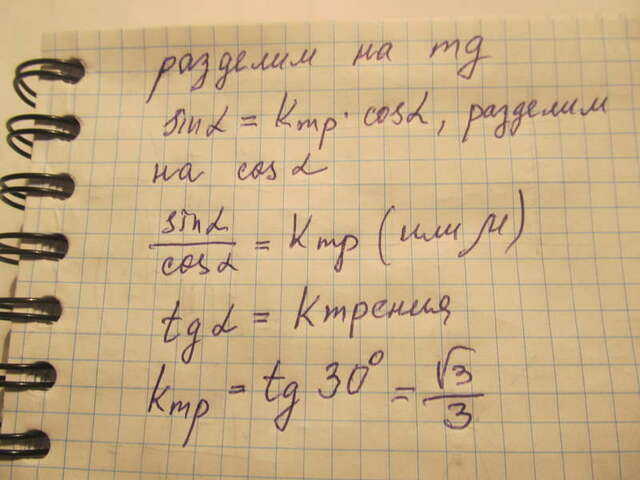 разделим на mg
sinα = Kтр · cosα, разделим
на cosα
sinα / cosα = Kтр (или μ)
tgα = Kтрения
Kтр = tg 30° = √3 / 3